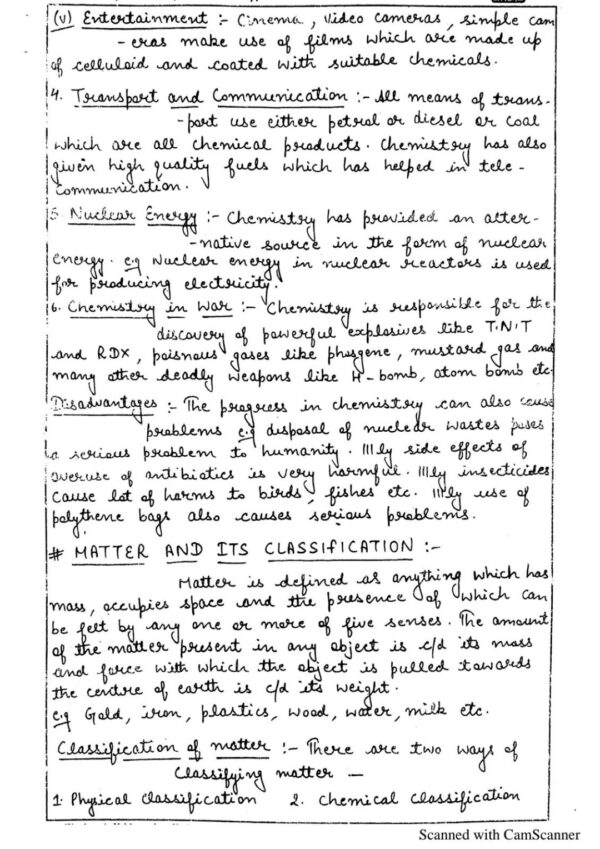 (v) Entertainment :- Cinema, video cameras, simple cam
- eras make use of films which are made up
of celluloid and coated with suitable chemicals.
4. Transport and Communication :- All means of trans-
- port use either petrol or diesel or coal
which are all chemical products. Chemistry has also
given high quality fuels which has helped in tele-
communication.
5. Nuclear Energy :- Chemistry has provided an alter-
- native source in the form of nuclear
energy. e.g Nuclear energy in nuclear reactors is used
for producing electricity.
6. Chemistry in War :- Chemistry is responsible for the
discovery of powerful explosives like T.N.T
and RDX, poisnous gases like phosgene, mustard gas and
many other deadly weapons like H-bomb, atom bomb etc
Disadvantages :- The progress in chemistry can also cause
problems e.g disposal of nuclear wastes poses
a serious problem to humanity. Illly side effects of
overuse of antibiotics is very harmful. Illly insecticides
cause lot of harms to birds, fishes etc. Illly use of
polythene bags also causes serious problems.
# MATTER AND ITS CLASSIFICATION :-
Matter is defined as anything which has
mass, occupies space and the presence of which can
be felt by any one or more of five senses. The amount
of the matter present in any object is c/d its mass
and force with which the object is pulled towards
the centre of earth is c/d its weight.
e.g Gold, iron, plastics, wood, water, milk etc.
Classification of matter :- There are two ways of
classifying matter —
1. Physical classification 2. Chemical classification
Scanned with CamScanner